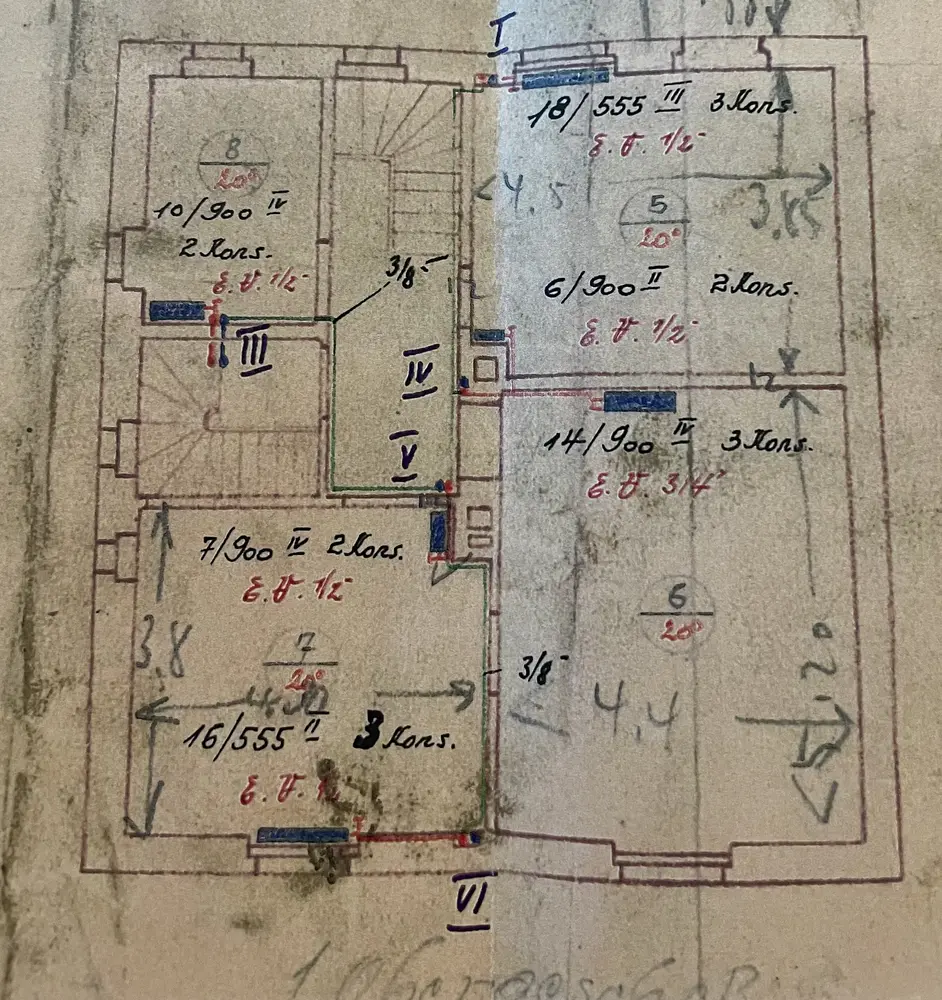 I
18/555 III 3 Kons.
E. V. 1/2"
8
20°
4.5
3.85
10/900 IV
5
20°
2 Kons.
3/8"
E. V. 1/2"
6/900 II 2 Kons.
E. V. 1/2"
III
IV
12
14/900 IV 3 Kons.
V
E. V. 3/4"
7/900 IV 2 Kons.
E. V. 1/2"
6
20°
3.8
7
20°
3/8"
5.20
4.4
16/555 II 3 Kons.
E. V.
VI